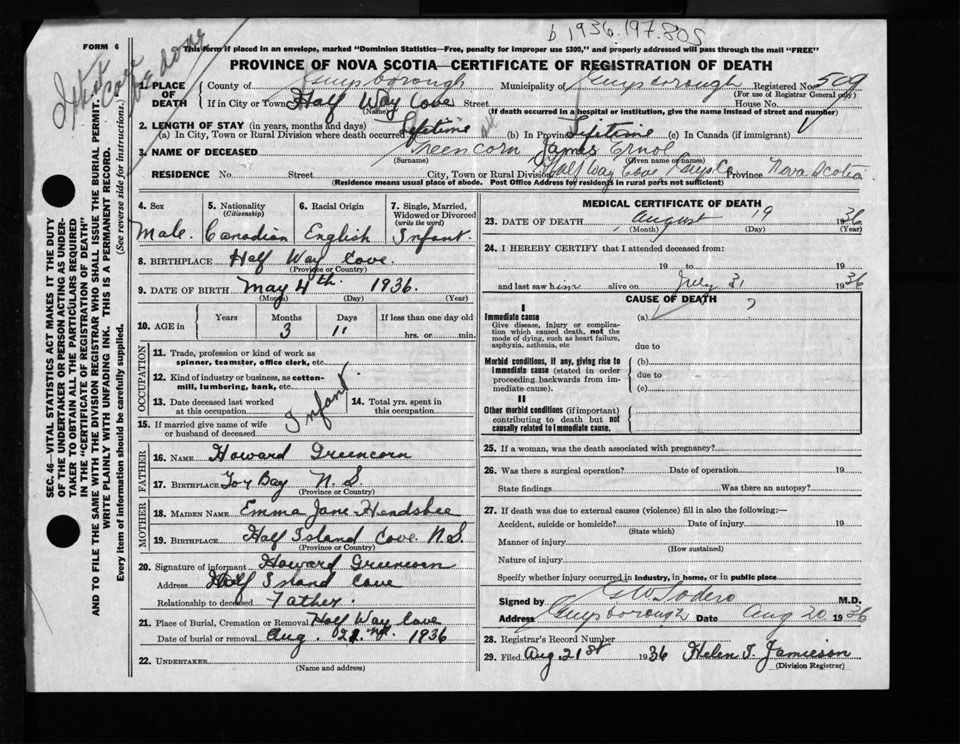 b 1936.197.805
FORM 6
This form if placed in an envelope, marked "Dominion Statistics—Free, penalty for improper use $300," and properly addressed will pass through the mail "FREE"
PROVINCE OF NOVA SCOTIA—CERTIFICATE OF REGISTRATION OF DEATH
SEC. 46—VITAL STATISTICS ACT MAKES IT THE DUTY
OF THE UNDERTAKER OR PERSON ACTING AS UNDER-
TAKER TO OBTAIN ALL THE PARTICULARS REQUIRED
IN THE "CERTIFICATE OF REGISTRATION OF DEATH"
AND TO FILE THE SAME WITH THE DIVISION REGISTRAR WHO SHALL ISSUE THE BURIAL PERMIT.
WRITE PLAINLY WITH UNFADING INK. THIS IS A PERMANENT RECORD.
Every item of information should be carefully supplied. (See reverse side for instructions.)
1. PLACE OF DEATH County of Guysborough Municipality of Guysborough Registered No. 509
(For use of Registrar General only)
If in City or Town Half Way Cove Street House No.
(Name) (If death occurred in a hospital or institution, give the name instead of street and number)
2. LENGTH OF STAY (in years, months and days)
(a) In City, Town or Rural Division where death occurred Lifetime (b) In Province Lifetime (c) In Canada (if immigrant)
3. NAME OF DECEASED Greencorn James
(Surname) (Given name or names)
RESIDENCE No. Street City, Town or Rural Division Half Way Cove Guys Co Province Nova Scotia
(Residence means usual place of abode. Post Office Address for residents in rural parts not sufficient)
4. Sex 5. Nationality (Citizenship) 6. Racial Origin 7. Single, Married, Widowed or Divorced (write the word)
Male. Canadian English Infant
8. BIRTHPLACE Half Way Cove.
(Province or Country)
9. DATE OF BIRTH May 4th 1936.
(Month) (Day) (Year)
10. AGE in Years Months Days If less than one day old
3 11 hrs. or min.
OCCUPATION
11. Trade, profession or kind of work as spinner, teamster, office clerk, etc.
12. Kind of industry or business, as cotton-mill, lumbering, bank, etc.
Infant
13. Date deceased last worked at this occupation 14. Total yrs. spent in this occupation
15. If married give name of wife or husband of deceased
FATHER
16. NAME Howard Greencorn
17. BIRTHPLACE Tor Bay N.S.
(Province or Country)
MOTHER
18. MAIDEN NAME Emma Jane Hendsbee
19. BIRTHPLACE Half Island Cove N.S.
(Province or Country)
20. Signature of informant Howard Greencorn
Address Half Island Cove
Relationship to deceased Father.
21. Place of Burial, Cremation or Removal Half Way Cove
Date of burial or removal Aug. 1936
22. UNDERTAKER
(Name and address)
MEDICAL CERTIFICATE OF DEATH
23. DATE OF DEATH August 19 1936
(Month) (Day) (Year)
24. I HEREBY CERTIFY that I attended deceased from:
19 to 19
and last saw him alive on July 31 1936
CAUSE OF DEATH
I
Immediate cause (a) ?
Give disease, injury or complication which caused death, not the mode of dying, such as heart failure, asphyxia, asthenia, etc
due to
Morbid conditions, if any, giving rise to immediate cause (stated in order proceeding backwards from immediate cause).
(b)
due to
(c)
II
Other morbid conditions (if important) contributing to death but not causally related to immediate cause.
25. If a woman, was the death associated with pregnancy?
26. Was there a surgical operation? Date of operation 19
State findings Was there an autopsy?
27. If death was due to external causes (violence) fill in also the following:—
Accident, suicide or homicide? Date of injury 19
(State which)
Manner of injury
(How sustained)
Nature of injury
Specify whether injury occurred in industry, in home, or in public place
Signed by G W Sodero M.D.
Address Guysborough Date Aug 20 1936
28. Registrar's Record Number
29. Filed Aug 21st 1936 Helen T. Jamieson
(Division Registrar)